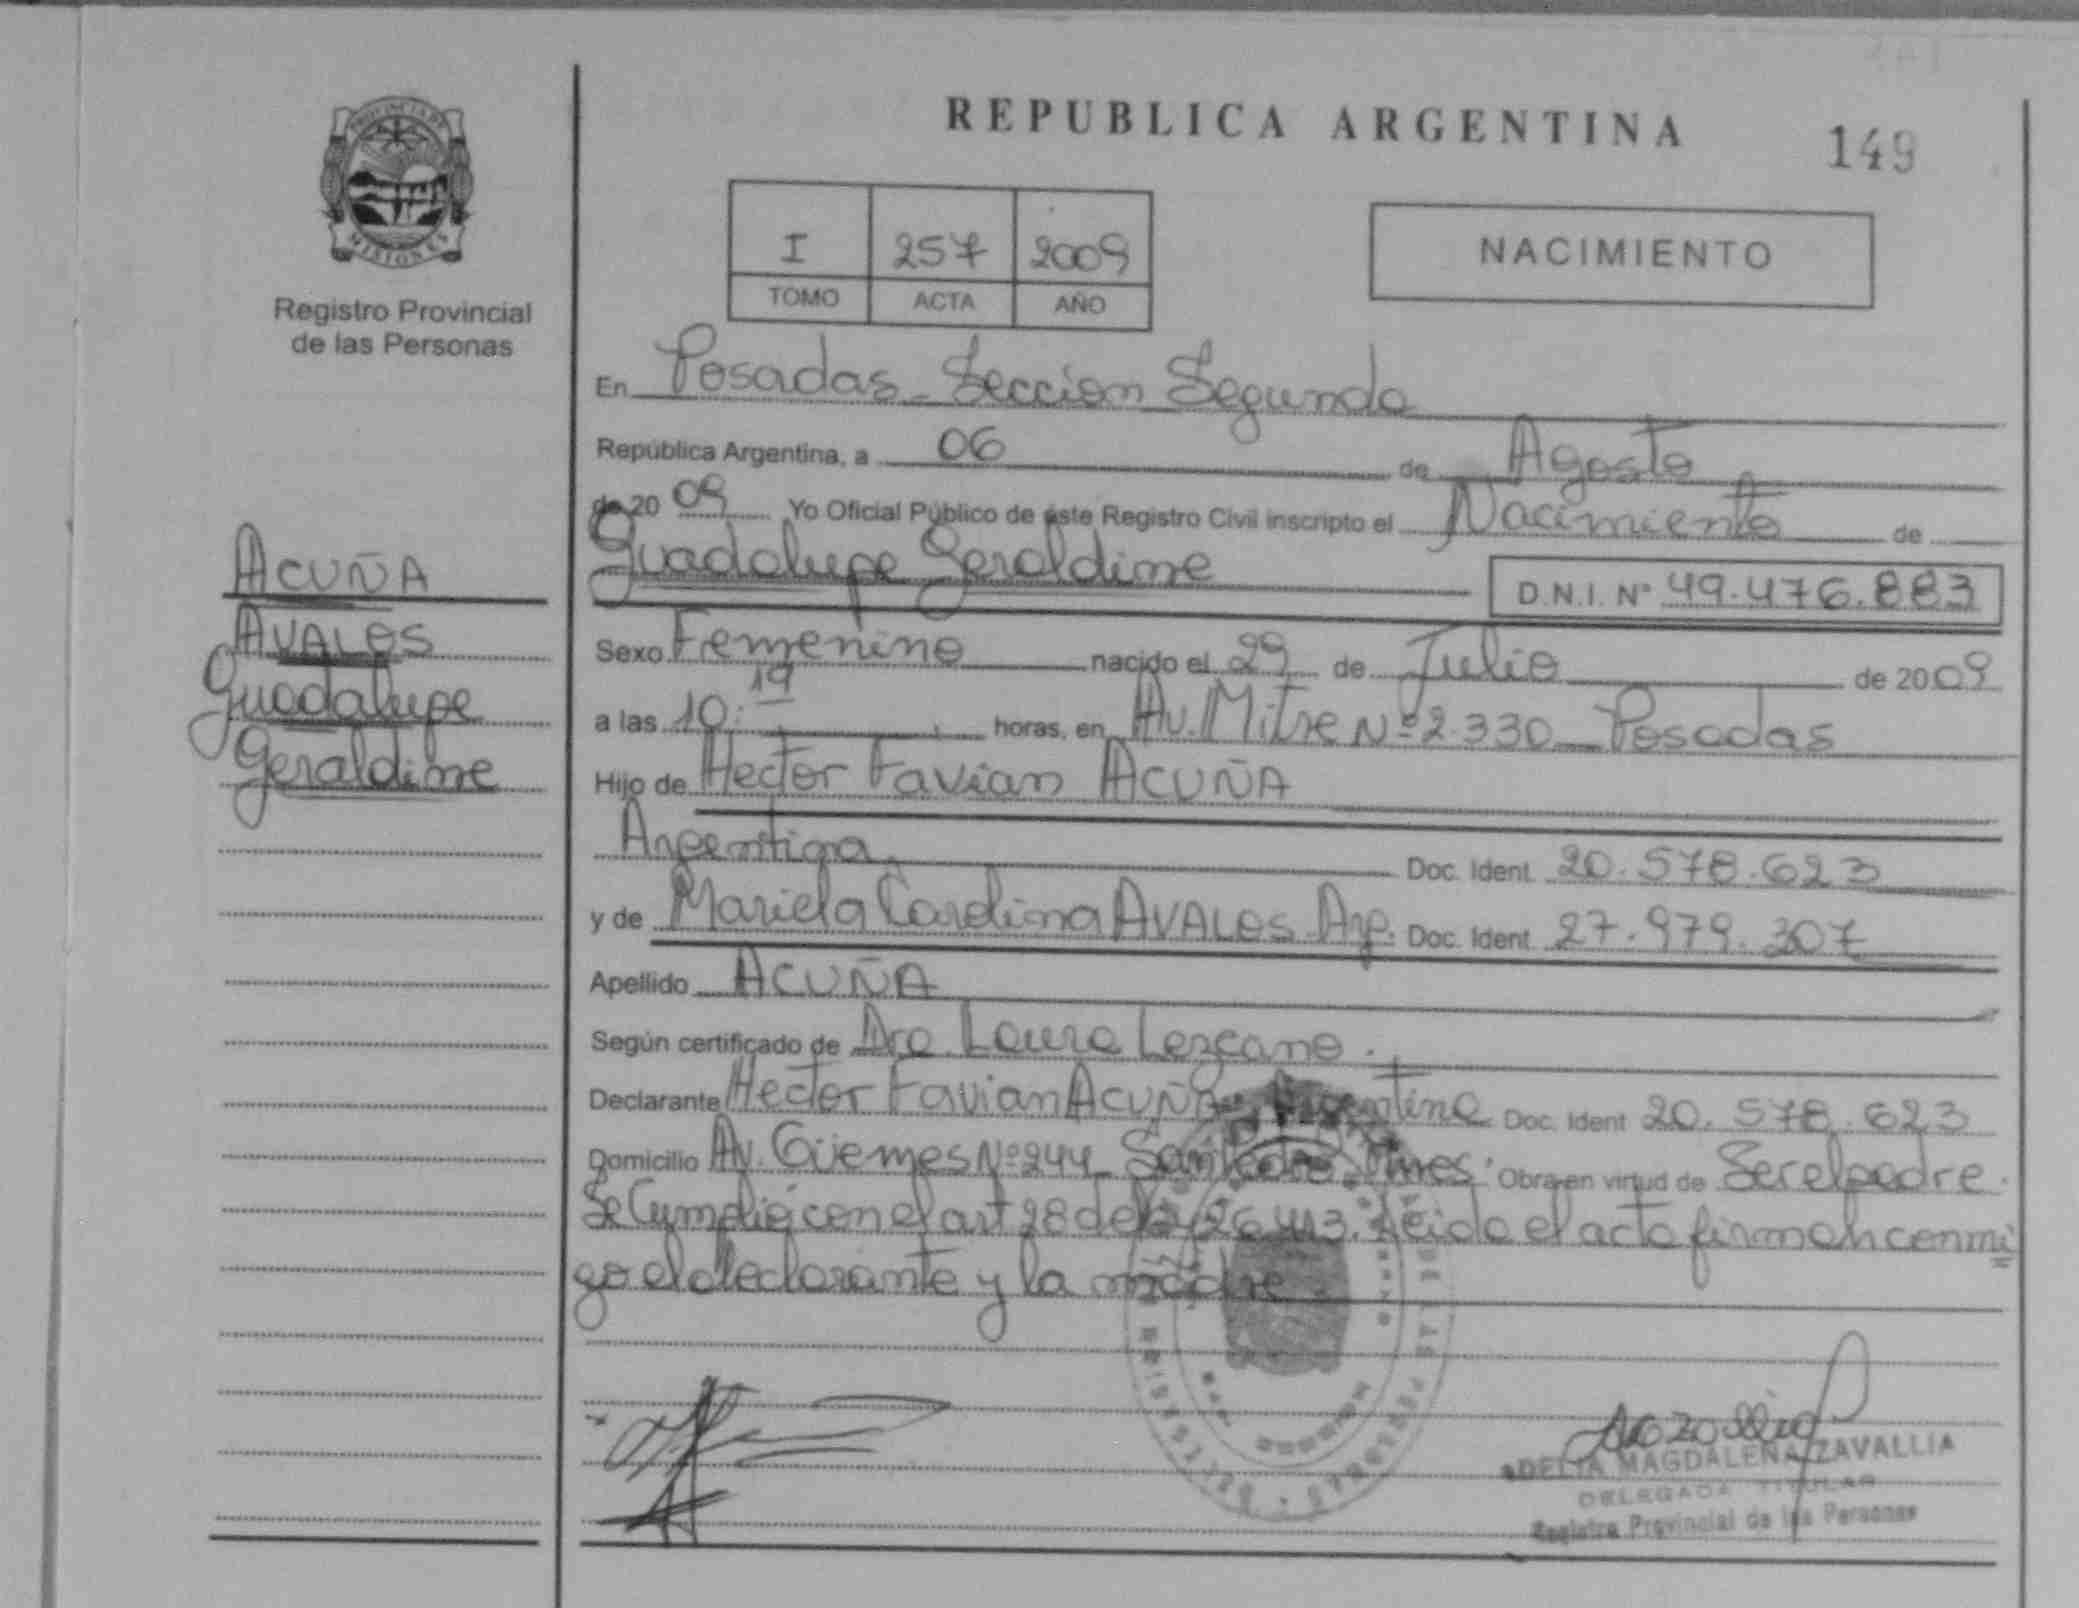 REPUBLICA ARGENTINA
149
PROVINCIA DE
MISIONES
Registro Provincial
de las Personas
I 257 2009
TOMO ACTA AÑO
NACIMIENTO
En Posadas - Seccion Segunda
República Argentina, a 06 de Agosto
de 20 09 Yo Oficial Público de éste Registro Civil inscripto el Nacimiento de
Guadalupe Geraldine D.N.I. Nº 49.476.883
ACUÑA
AVALOS
Guadalupe
Geraldine
Sexo Femenino nacido el 29 de Julio de 2009
a las 10:19 horas, en Av. Mitre Nº 2.330 Posadas
Hijo de Hector Favian ACUÑA
Argentina Doc. Ident. 20.578.623
y de Mariela Carolina AVALOS. Arg. Doc. Ident. 27.979.307
Apellido ACUÑA
Según certificado de Dra. Laura Lezcano.
Declarante Hector Favian Acuña Argentino Doc. Ident 20.578.623
Domicilio Av. Güemes Nº 244 San Pedro Mnes. Obra en virtud de Ser el padre.
Se Cumplió con el art 28 de ley 26.413. Leido el acta firman conmi
go el declarante y la madre
DELIA MAGDALENA ZAVALLIA
DELEGADA TITULAR
Registro Provincial de las Personas